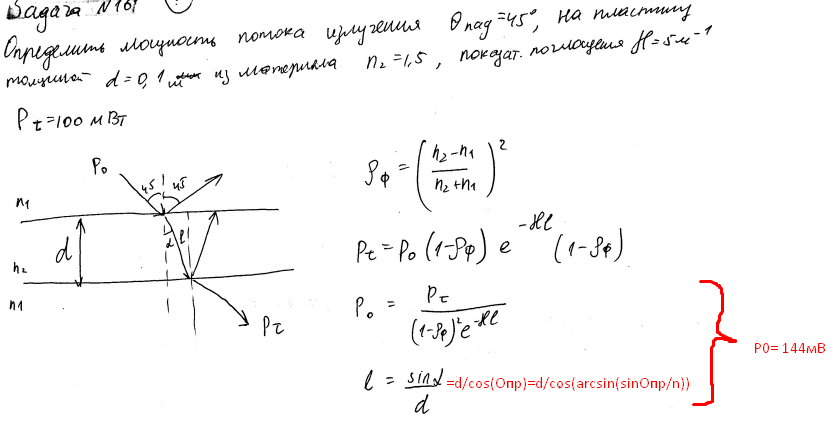 Задача №161
Определить мощность потока излучения Θпад=45°, на пластину
толщиной d=0,1м из материала n₂=1,5, показат. поглощения ℋ=5м⁻¹
Pτ=100 мВт
P₀
45 45
n₁
d
α l
n₂
n₁
Pτ
ρф = ((n₂-n₁)/(n₂+n₁))²
Pτ = P₀ (1-ρф) e^(-ℋl) (1-ρф)
P₀ = Pτ/((1-ρф)² e^(-ℋl))
P0= 144мВ
l = sinα/d =d/cos(Θпр)=d/cos(arcsin(sinΘпр/n))